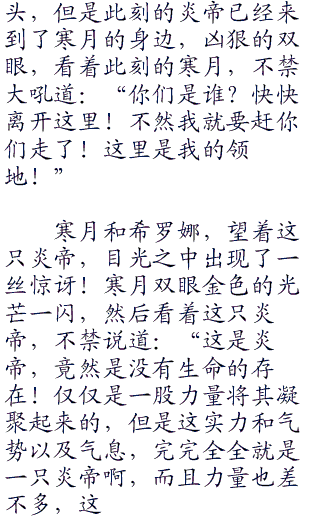 头，但是此刻的炎帝已经来
到了寒月的身边，凶狠的双
眼，看着此刻的寒月，不禁
大吼道：“你们是谁？快快
离开这里！不然我就要赶你
们走了！这里是我的领
地！”
寒月和希罗娜，望着这
只炎帝，目光之中出现了一
丝惊讶！寒月双眼金色的光
芒一闪，然后看着这只炎
帝，不禁说道：“这是炎
帝，竟然是没有生命的存
在！仅仅是一股力量将其凝
聚起来的，但是这实力和气
势以及气息，完完全全就是
一只炎帝啊，而且力量也差
不多，这